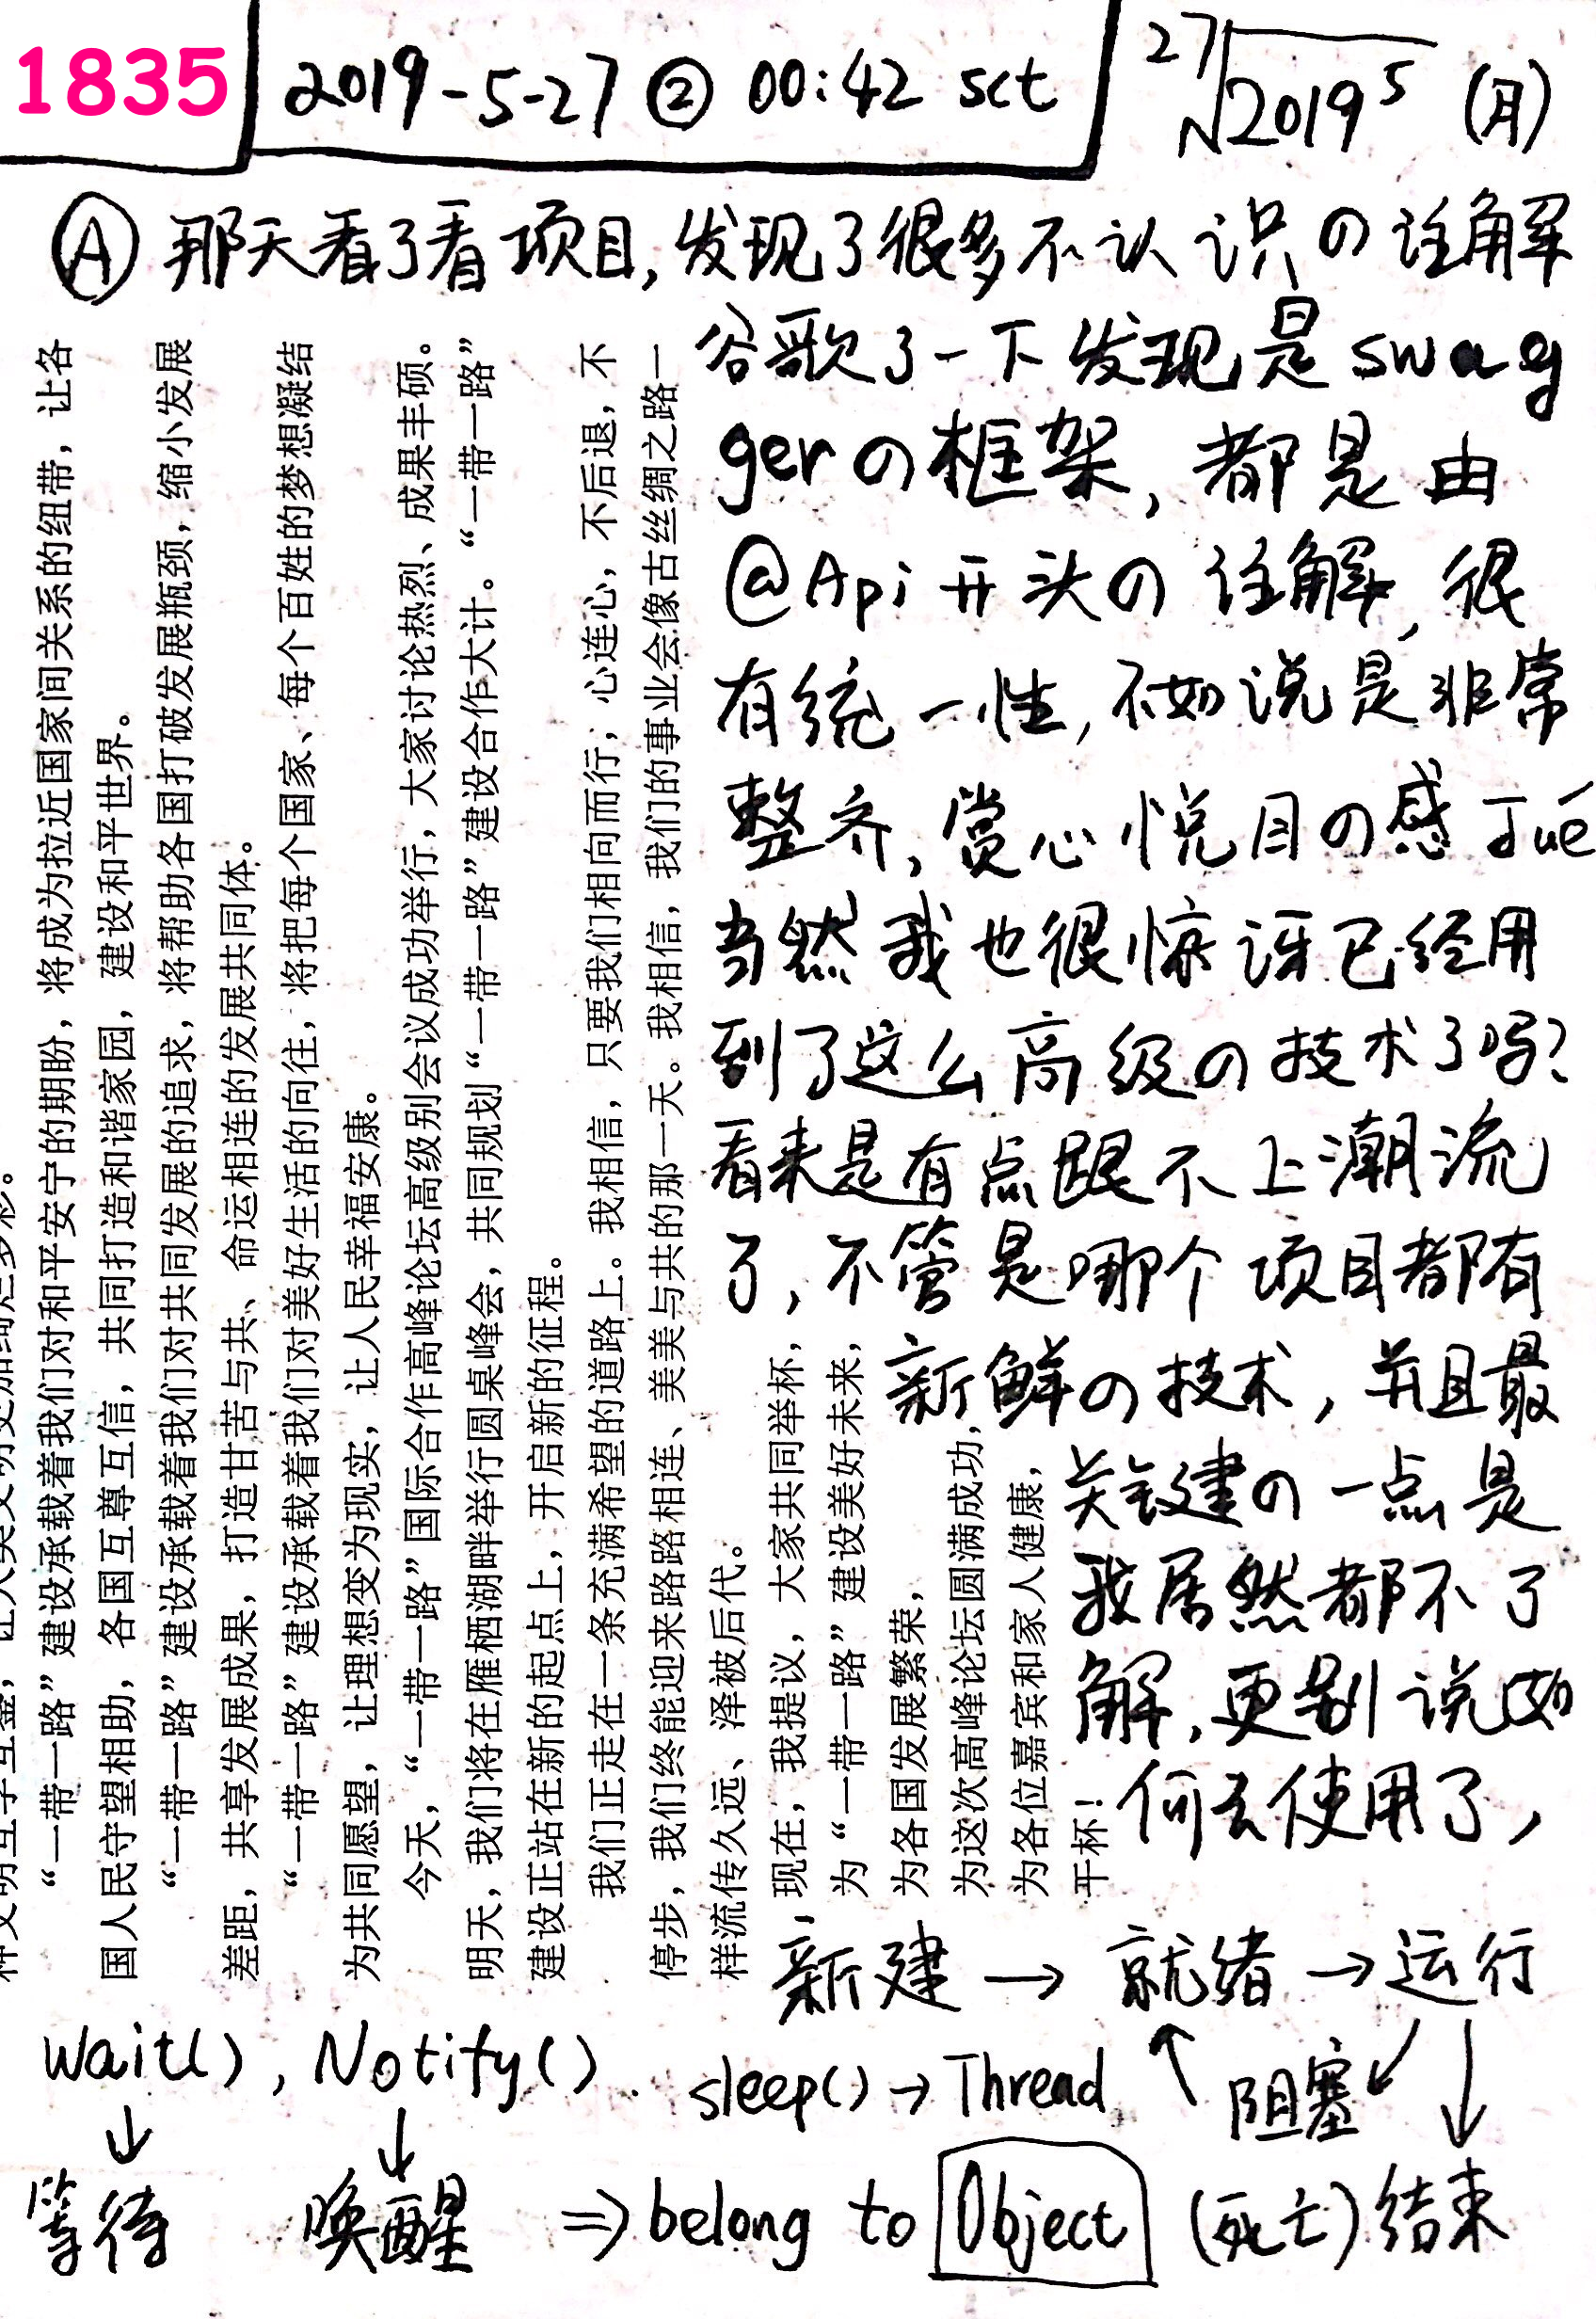 1835
2019-5-27 ② 00:42 sct
27 2019 5 (月)
Ⓐ 那天看了看项目,发现了很多不认识の注解
谷歌了一下发现是swag
gerの框架,都是由
@Api开头の注解,很
有统一性,不如说是非常
整齐,赏心悦目の感Jué
当然我也很惊讶已经用
到了这么高级の技术了吗?
看来是有点跟不上潮流
了,不管是哪个项目都有
新鲜の技术,并且最
关键の一点是
我居然都不了
解,更别说如
何去使用了,
“一带一路”建设承载着我们对和平安宁的期盼,将成为拉近国家间关系的纽带,让各
国人民守望相助,各国互尊互信,共同打造和谐家园,建设和平世界。
“一带一路”建设承载着我们对共同发展的追求,将帮助各国打破发展瓶颈,缩小发展
差距,共享发展成果,打造甘苦与共、命运相连的发展共同体。
“一带一路”建设承载着我们对美好生活的向往,将把每个国家、每个百姓的梦想凝结
为共同愿望,让理想变为现实,让人民幸福安康。
今天,“一带一路”国际合作高峰论坛高级别会议成功举行,大家讨论热烈、成果丰硕。
明天,我们将在雁栖湖畔举行圆桌峰会,共同规划“一带一路”建设合作大计。“一带一路”
建设正站在新的起点上,开启新的征程。
我们正走在一条充满希望的道路上。我相信,只要我们相向而行,心连心,不后退,不
停步,我们终能迎来路路相连、美美与共的那一天。我相信,我们的事业会像古丝绸之路一
样流传久远、泽被后代。
现在,我提议,大家共同举杯,
为“一带一路”建设美好未来,
为各国发展繁荣,
为这次高峰论坛圆满成功,
为各位嘉宾和家人健康,
干杯!
新建 → 就绪 → 运行
Wait(), Notify(). sleep() → Thread ↑ 阻塞 ↙ ↓
↓ ↓
等待 唤醒 ⇒ belong to Object (死亡) 结束